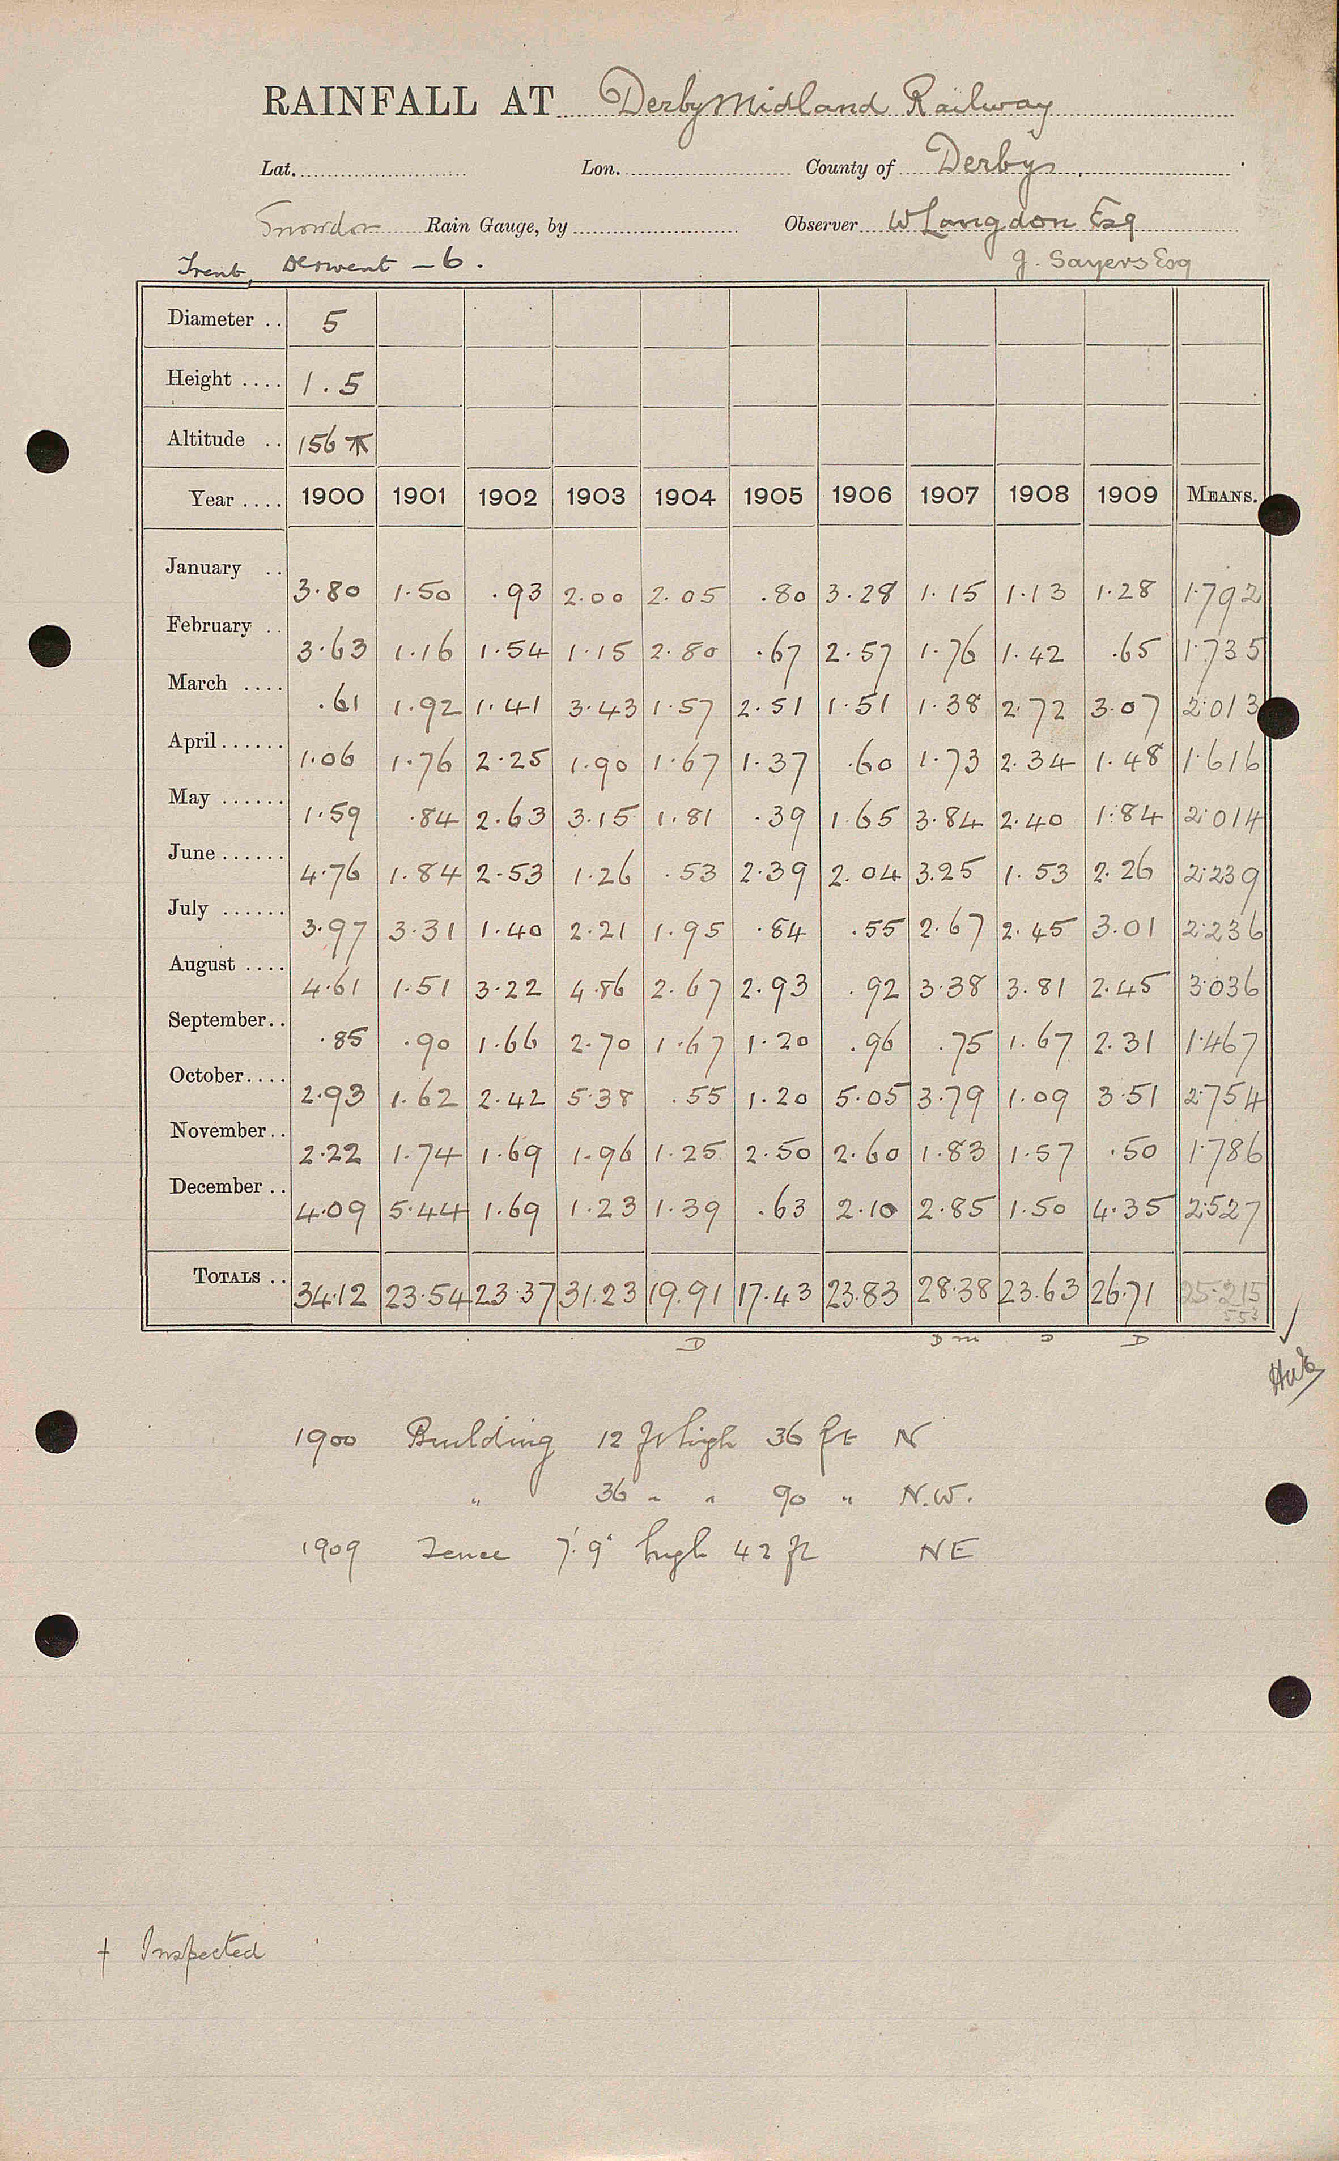 RAINFALL AT Derby Midland Railway
Lat. Lon. County of Derby
Snowdon Rain Gauge, by Observer W Langdon Esq
Trent, Derwent - 6. J. Sayers Esq
Diameter .. 5
Height .... 1.5
Altitude .. 156
Year .... 1900 1901 1902 1903 1904 1905 1906 1907 1908 1909 MEANS.
January .. 3.80 1.50 .93 2.00 2.05 .80 3.28 1.15 1.13 1.28 1.792
February .. 3.63 1.16 1.54 1.15 2.80 .67 2.57 1.76 1.42 .65 1.735
March .... .61 1.92 1.41 3.43 1.57 2.51 1.51 1.38 2.72 3.07 2.013
April ...... 1.06 1.76 2.25 1.90 1.67 1.37 .60 1.73 2.34 1.48 1.616
May ...... 1.59 .84 2.63 3.15 1.81 .39 1.65 3.84 2.40 1.84 2.014
June ...... 4.76 1.84 2.53 1.26 .53 2.39 2.04 3.25 1.53 2.26 2.239
July ...... 3.97 3.31 1.40 2.21 1.95 .84 .55 2.67 2.45 3.01 2.236
August .... 4.61 1.51 3.22 4.86 2.67 2.93 .92 3.38 3.81 2.45 3.036
September.. .85 .90 1.66 2.70 1.67 1.20 .96 .75 1.67 2.31 1.467
October.... 2.93 1.62 2.42 5.38 .55 1.20 5.05 3.79 1.09 3.51 2.754
November.. 2.22 1.74 1.69 1.96 1.25 2.50 2.60 1.83 1.57 .50 1.786
December .. 4.09 5.44 1.69 1.23 1.39 .63 2.10 2.85 1.50 4.35 2.527
TOTALS .. 34.12 23.54 23.37 31.23 19.91 17.43 23.83 28.38 23.63 26.71 25.215
D D m D D
1900 Building 12 ft high 36 ft N
" 36 " " 90 " N.W.
1909 Fence 7'.9" high 42 ft NE
† Inspected